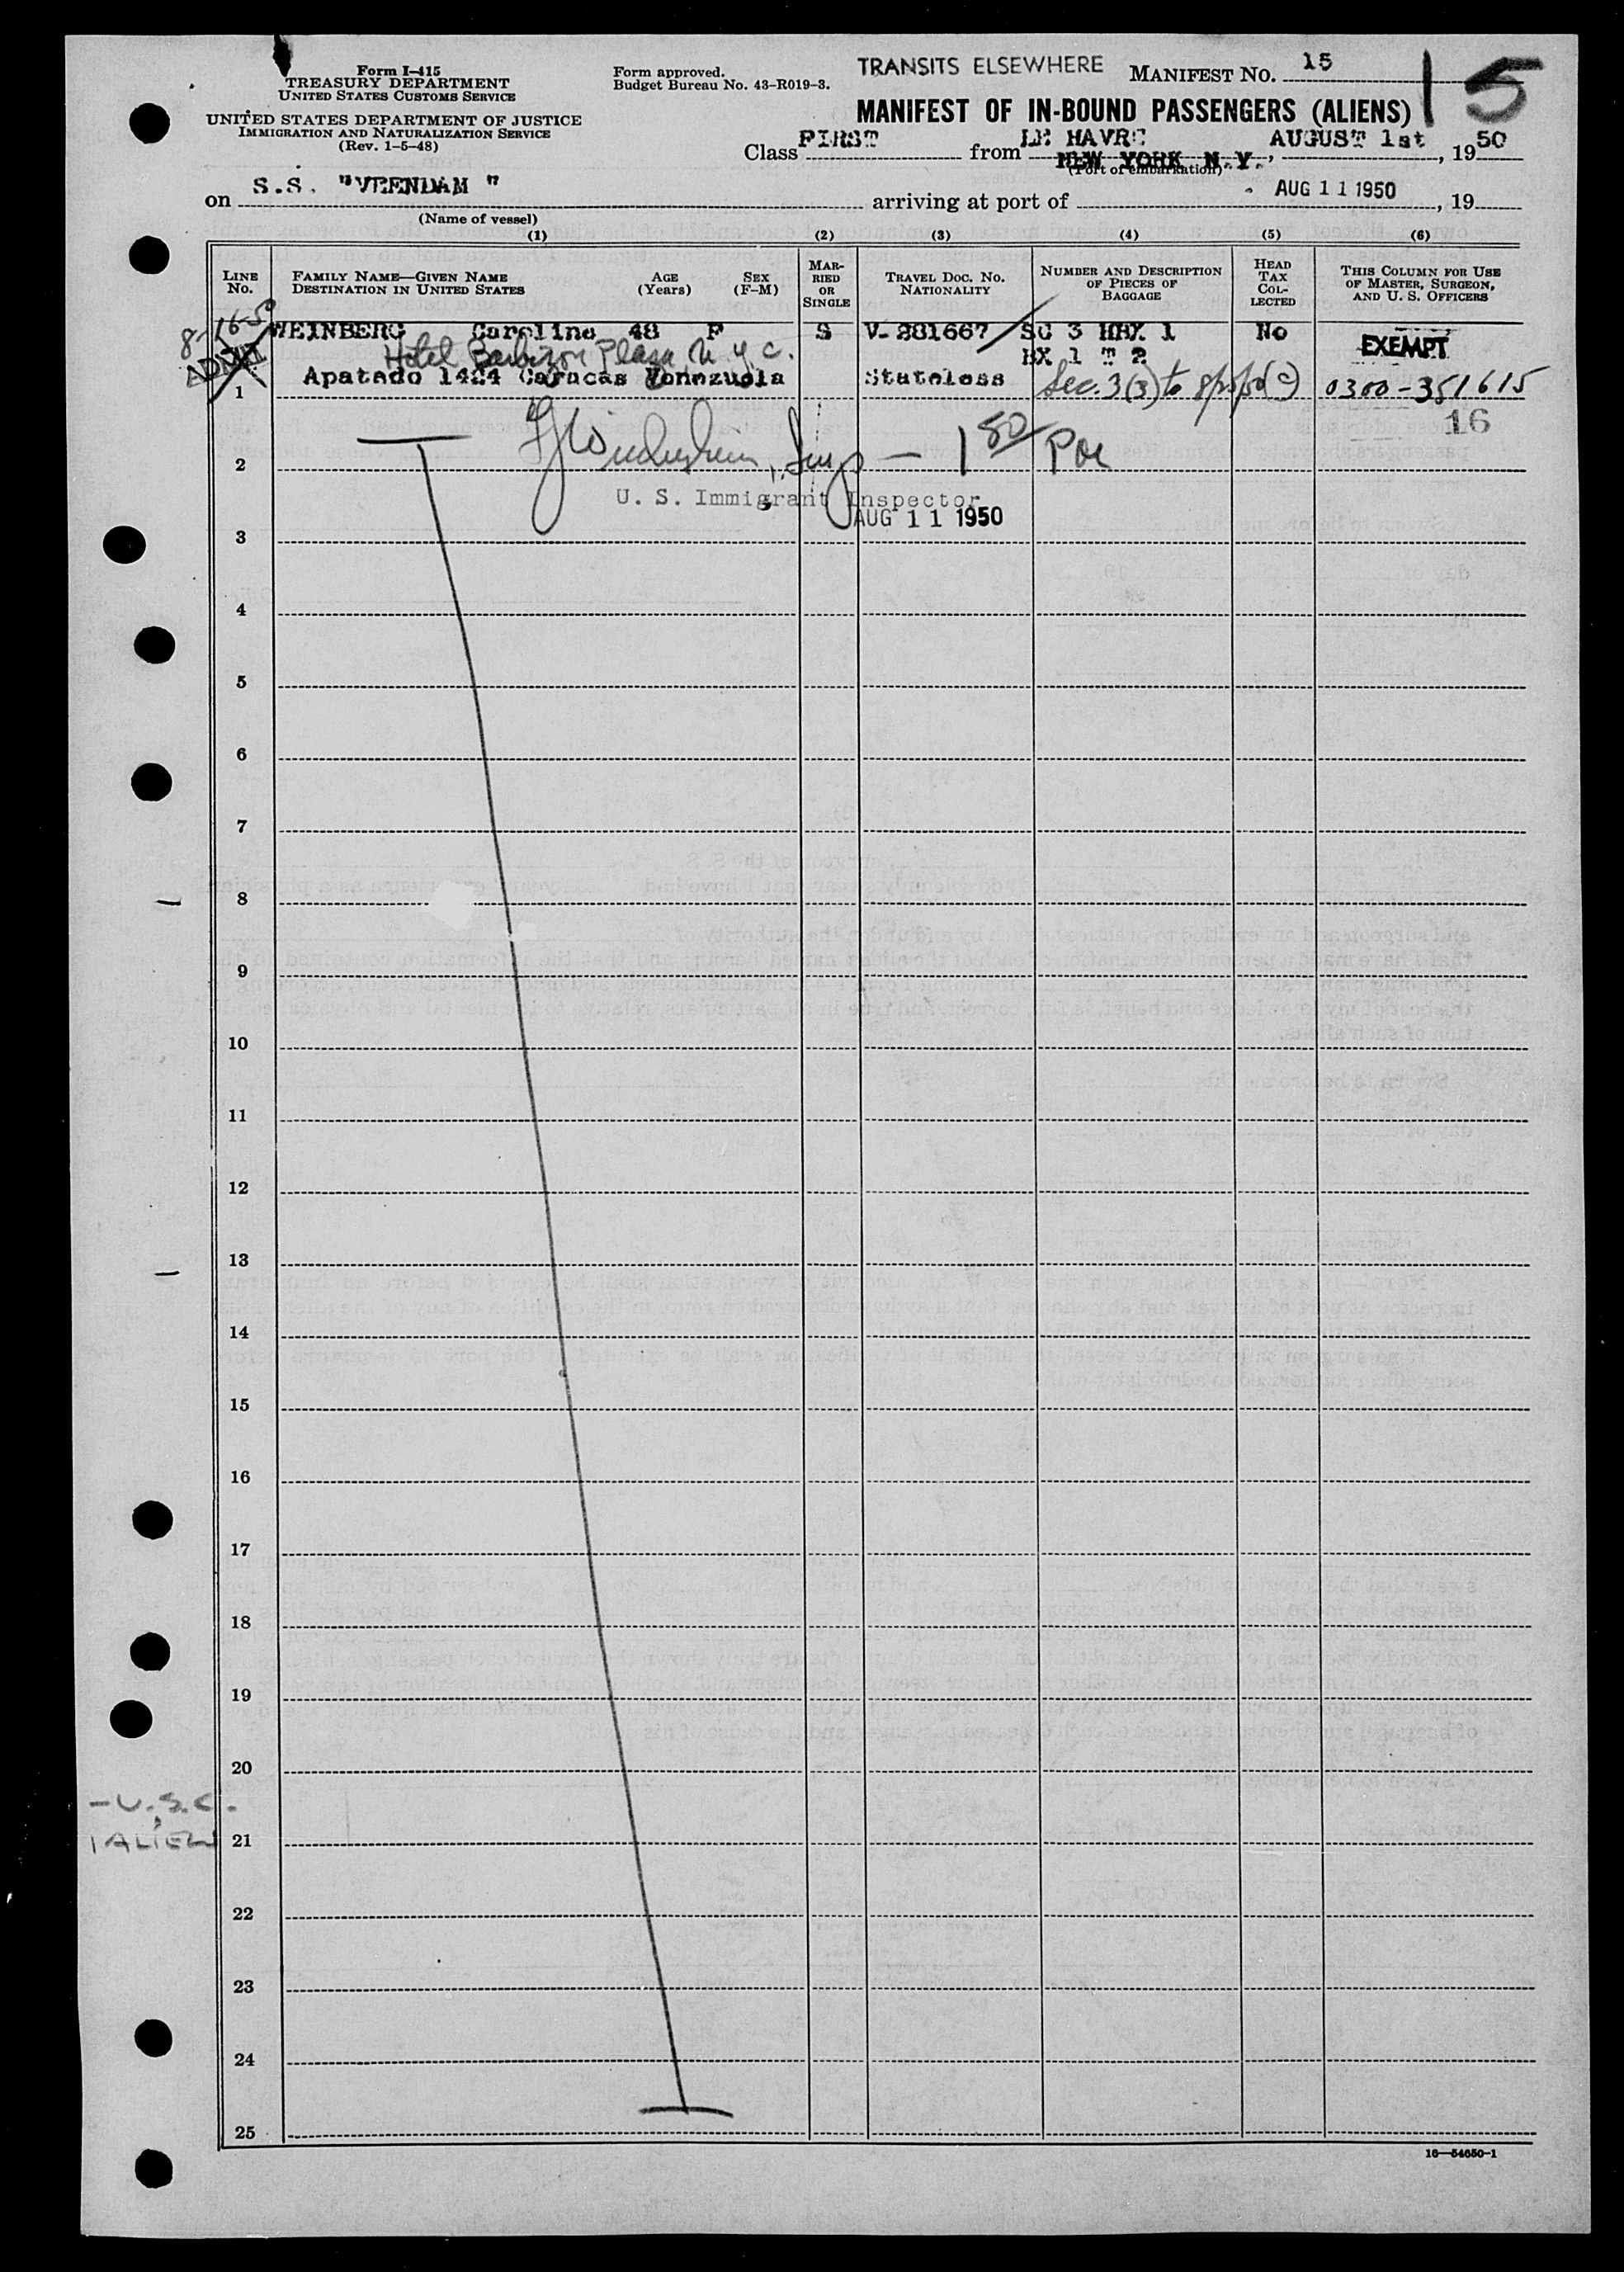 Form I-415
TREASURY DEPARTMENT
UNITED STATES CUSTOMS SERVICE
UNITED STATES DEPARTMENT OF JUSTICE
IMMIGRATION AND NATURALIZATION SERVICE
(Rev. 1-5-48)
Form approved.
Budget Bureau No. 43-R019-3.
TRANSITS ELSEWHERE
MANIFEST NO. 15
15
MANIFEST OF IN-BOUND PASSENGERS (ALIENS)
Class FIRST from LE HAVRE, AUGUST 1st, 1950
(Port of embarkation)
on S.S. "VEENDAM" arriving at port of NEW YORK N.Y. AUG 11 1950, 19
(Name of vessel)
(1) (2) (3) (4) (5) (6)
LINE NO.
FAMILY NAME—GIVEN NAME
DESTINATION IN UNITED STATES
AGE (Years)
SEX (F-M)
MARRIED OR SINGLE
TRAVEL DOC. NO.
NATIONALITY
NUMBER AND DESCRIPTION OF PIECES OF BAGGAGE
HEAD TAX COLLECTED
THIS COLUMN FOR USE OF MASTER, SURGEON, AND U. S. OFFICERS
8-16-50
ADMIT
WEINBERG Caroline 48 F S V-281667 SC 3 HBX 1 No EXEMPT
Hotel Barbizon Plaza N.Y.C. BX 1 T 2
1 Apatado 1424 Caracas Venezuela Stateless Sec. 3(3) to 0300-351615
16
2
Insp — 1 Poe
U. S. Immigrant Inspector
AUG 11 1950
3
4
5
6
7
8
9
10
11
12
13
14
15
16
17
18
19
20
- U.S.C.
1 ALIEN
21
22
23
24
25
16—54650-1